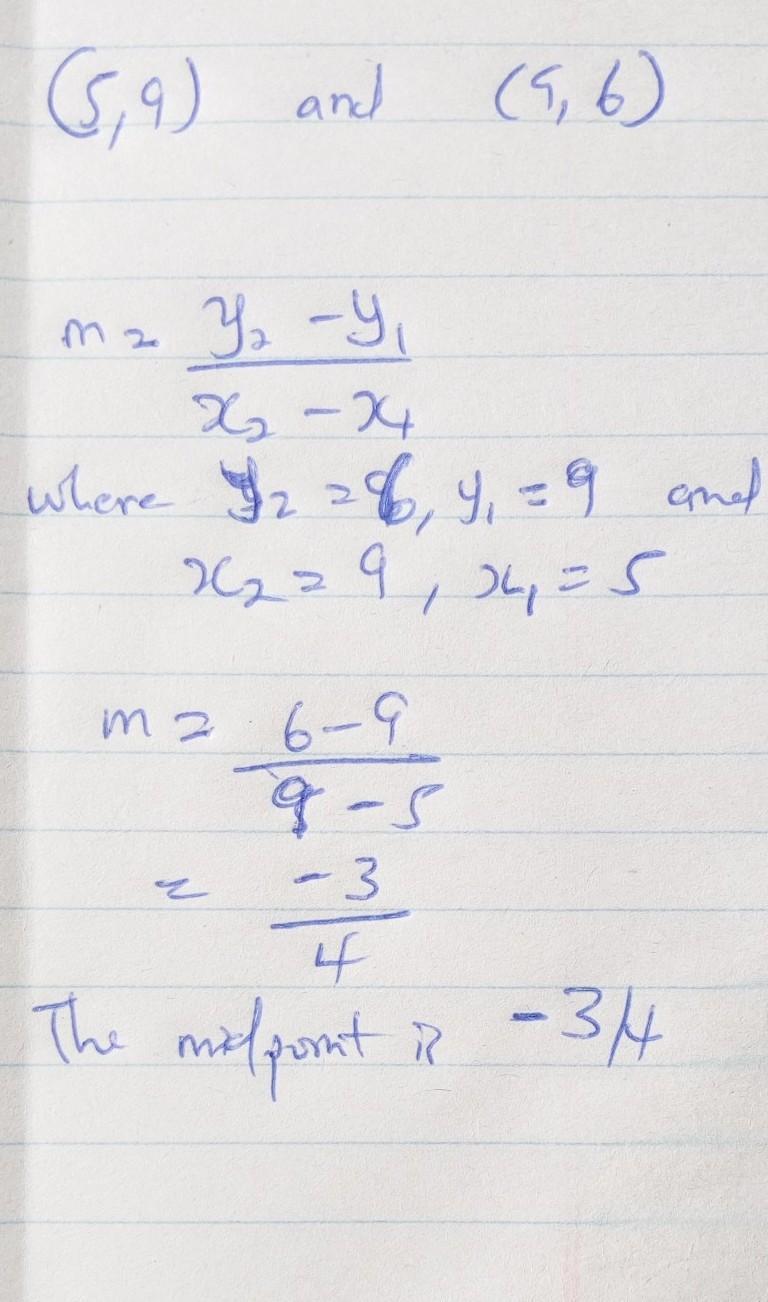 (5,9) and (9,6)
m = y₂ - y₁
x₂ - x₁
where y₂ = 6, y₁ = 9 and
x₂ = 9, x₁ = 5
m = 6-9
9-5
= -3
4
The midpoint is -3/4